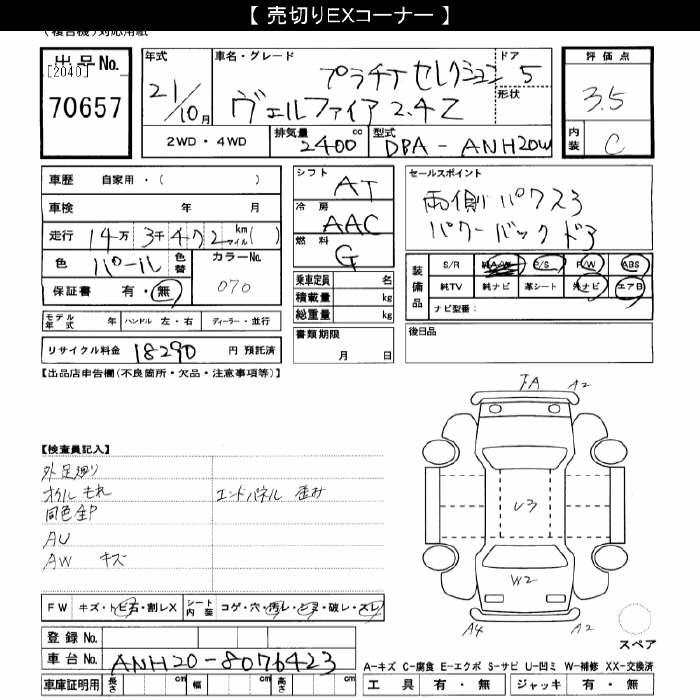 【 売切りEXコーナー 】
(複合機)対応用紙
出品No.
[2040]
70657
年式
21/10月
車名・グレード
プラチナ セレクション
ヴェルファイア 2.4Z
ドア
5
形状
2WD・4WD
排気量
2400 cc
型式
DBA - ANH20W
評価点
3.5
内装
C
車歴 自家用・( )
車検 年 月
走行 14万 3千 4 7 2 km マイル ( )
色 パール 色替
カラーNo.
070
保証書 有・無
モデル年式 年 ハンドル 左・右 ディーラー・並行
リサイクル料金 18290 円 預託済
シフト AT
冷房 AAC
燃料 G
乗車定員 名
積載量 kg
総重量 kg
書類期限
月 日
セールスポイント
両側パワスラ
パワーバックドア
装備品
S/R 純A/W P/S P/W ABS
純TV 純ナビ 革シート 外ナビ エアB
ナビ型番:
後日品
【出品店申告欄(不良箇所・欠品・注意事項等)】
【検査員記入】
外足廻り
オイルもれ
エンドパネル 歪み
同色全P
AU
AW キズ
FA
A2
A2
U3
W2
A4
A2
スペア
FW キズ・トビ石・割レX
シート内装 コゲ・穴・汚レ・シミ・破レ・スレ
登録No.
車台No. ANH20-8076423
車庫証明用 長さ cm 幅 cm 高さ cm
A-キズ C-腐食 E-エクボ S-サビ U-凹ミ W-補修 XX-交換済
工具 有・無 ジャッキ 有・無